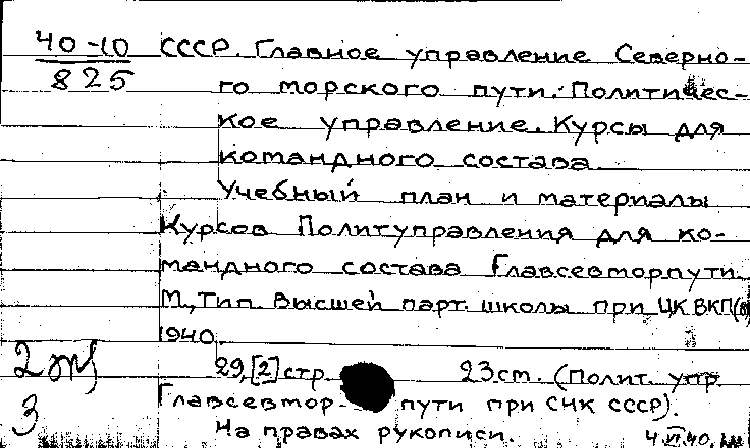 40-10
825
СССР. Главное управление Северно-
го морского пути. Политичес-
кое управление. Курсы для
командного состава
Учебный план и материалы
Курсов Политуправления для ко-
мандного состава Главсевморпути.
М., Тип. Высшей парт. школы при ЦК ВКП(б)
1940.
2 экз
3
29,[2] стр. 23 ст. (Полит. упр.
Главсевмор- пути при СНК СССР).
На правах рукописи.
4.VI.40.